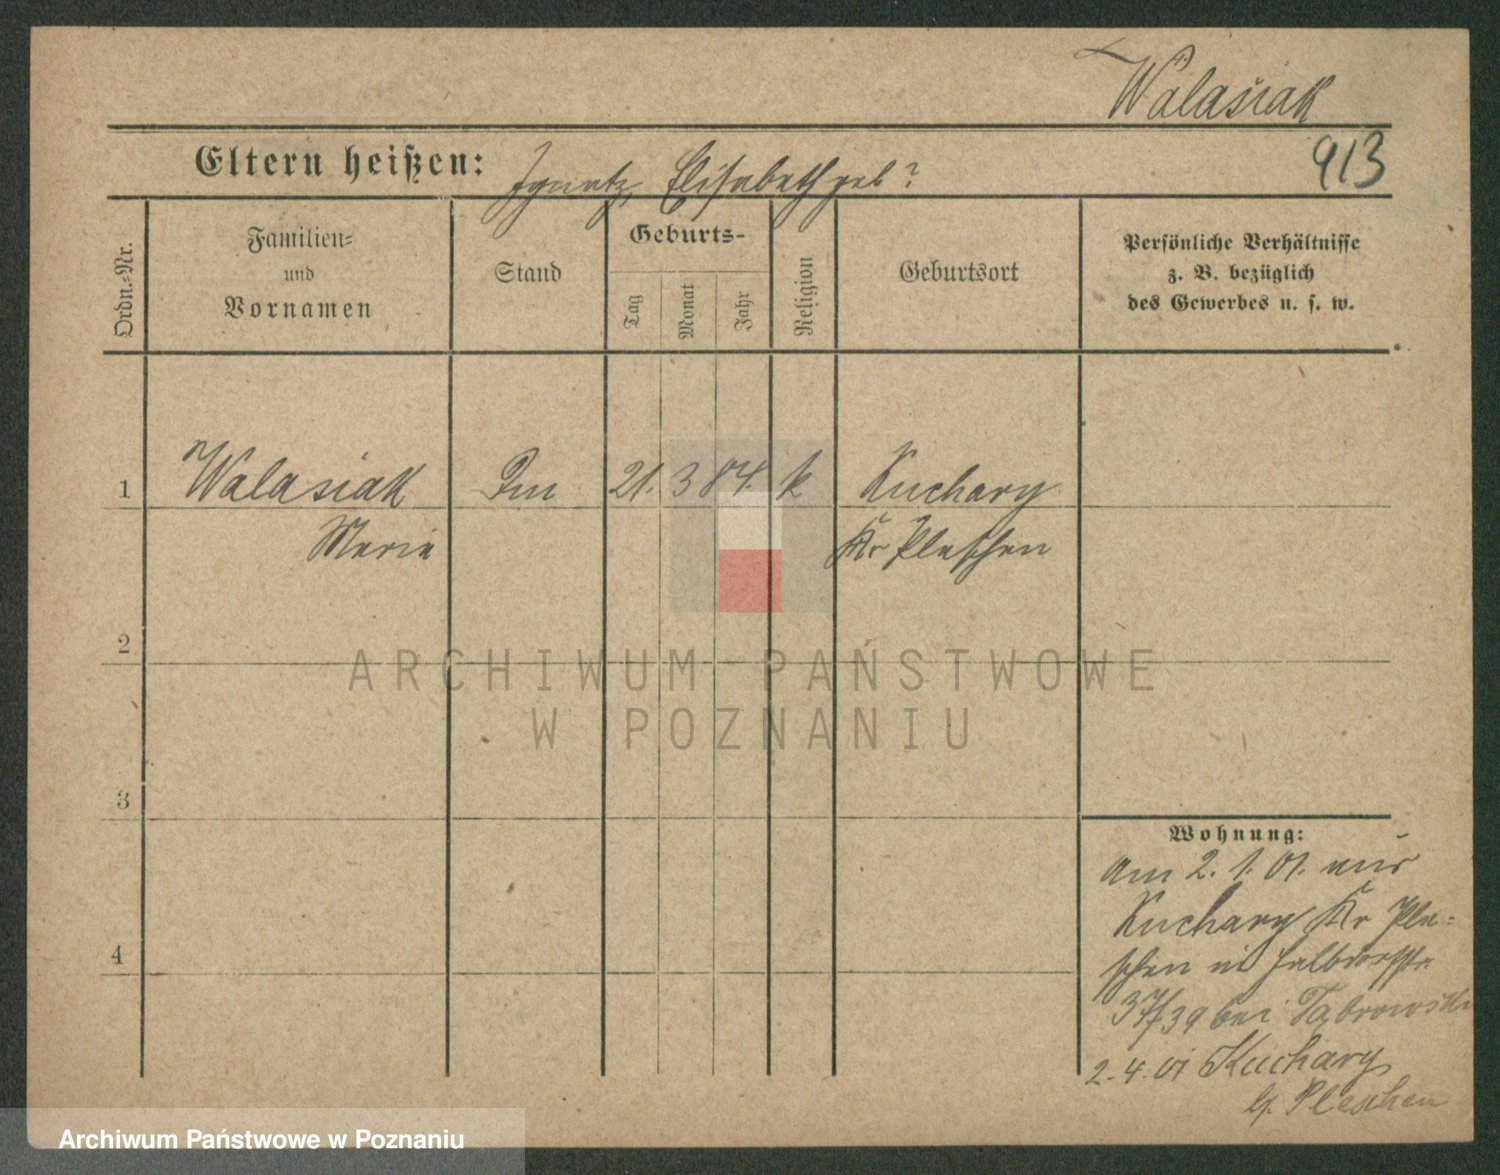 Walasiak
913
Eltern heißen: Ignatz, Elisabeth geb?
Ordn.-Nr.
Familien-
und
Vornamen
Stand
Geburts-
Tag
Monat
Jahr
Religion
Geburtsort
Persönliche Verhältnisse
z. B. bezüglich
des Gewerbes u. s. w.
1 Walasiak 21. 3 84. k Kuchary
Marie Kr Pleschen
2
ARCHIWUM PAŃSTWOWE
W POZNANIU
3
Wohnung:
am 2. 1. 01. aus
Kuchary Kr Ple-
schen in Halbdorfstr
4
37/39 bei Dąbrowski
2.4.01 Kuchary
b/. Pleschen
Archiwum Państwowe w Poznaniu